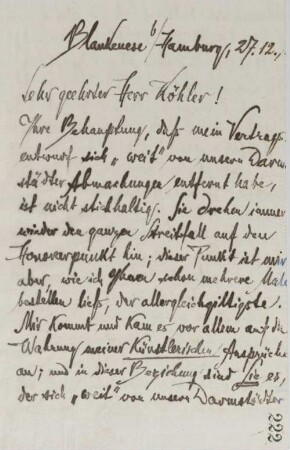 Blankenese b/Hamburg, 27.12.,
Sehr geehrter Herr Köhler!
Ihre Behauptung, daß mein Vertrags-
entwurf sich „weit" von unseren Darm-
städter Abmachungen entfernt habe,
ist nicht stichhaltig. Sie drehen immer
wieder den ganzen Streitfall auf den
Honorarpunkt hin; dieser Punkt ist mir
aber, wie ich Ihnen schon mehrere Male
bestellen ließ, der allergleichgiltigste.
Mir kommt und kam es vor allem auf die
Wahrung meiner Künstlerischen Ansprüche
an; und in dieser Beziehung sind Sie es,
der sich „weit" von unsern Darmstädter
222